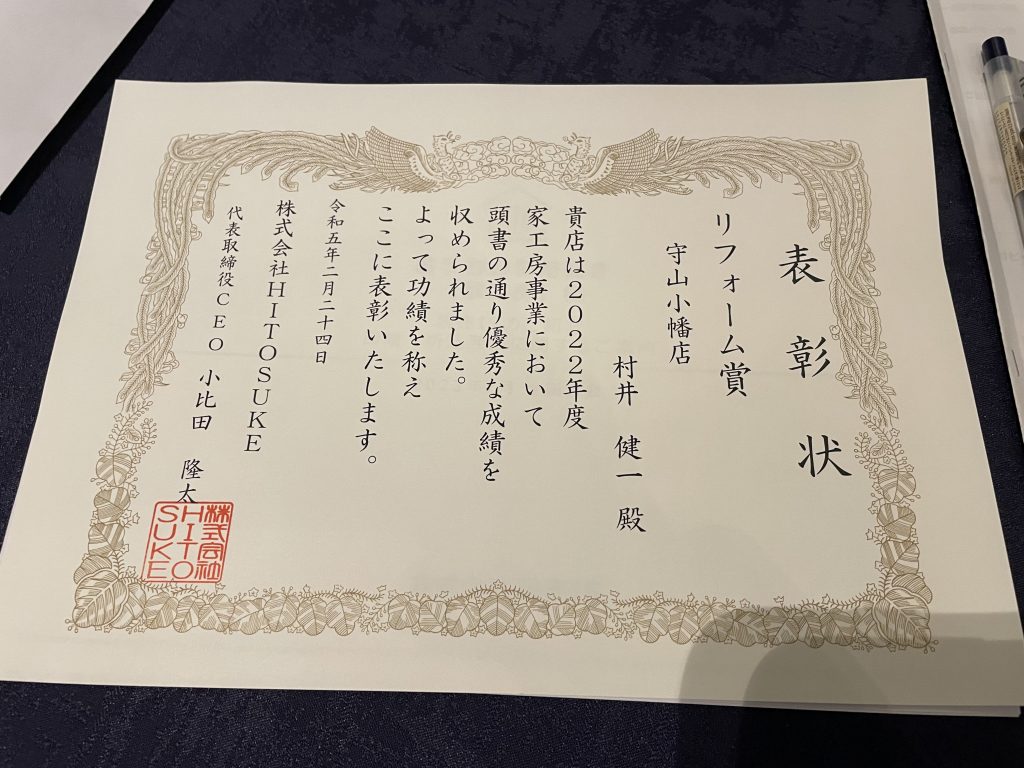 表彰状
リフォーム賞
守山小幡店
村井 健一 殿
貴店は２０２２年度
家工房事業において
頭書の通り優秀な成績を
収められました。
よって功績を称え
ここに表彰いたします。
令和五年二月二十四日
株式会社ＨＩＴＯＳＵＫＥ
代表取締役ＣＥＯ 小比田 隆太
株式会社
HITO
SUKE